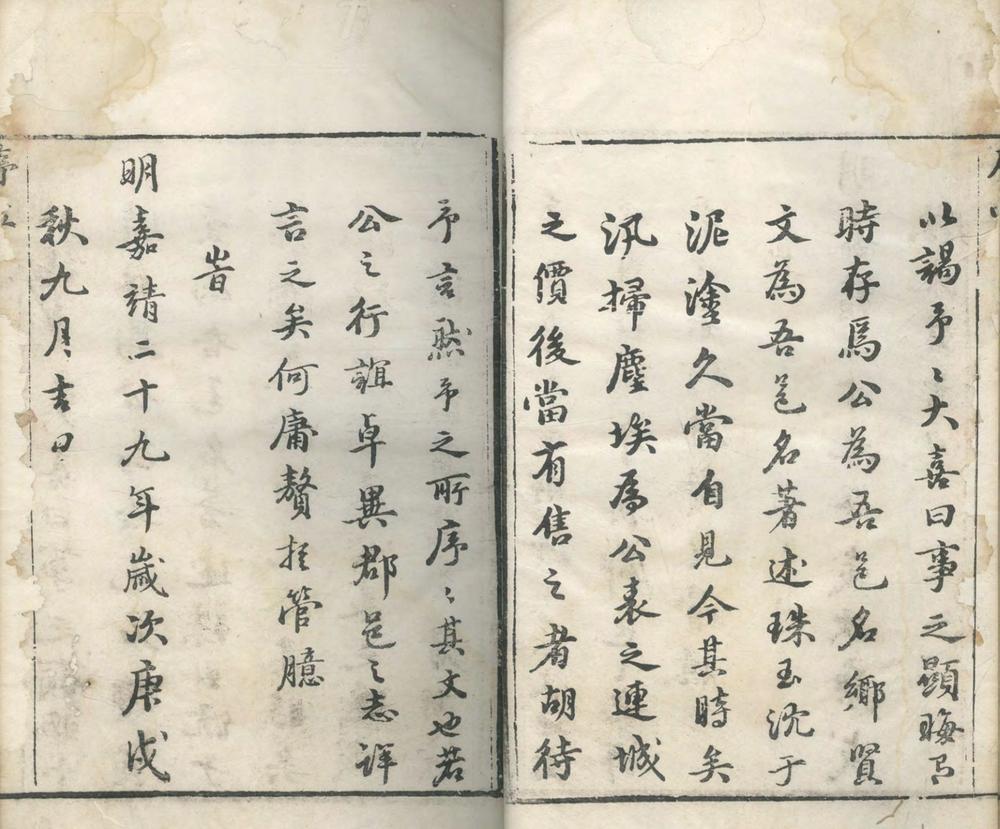 以謁予〻大喜曰事之顯晦有
時存焉公為吾邑名鄉賢
文為吾邑名著述珠玉沈于
泥塗久當自見今其時矣
汛掃塵埃為公表之連城
之價後當有售之者胡待
予言然予之所序〻其文也若
公之行誼卓異郡邑之志詳
言之矣何庸贅拄管臆
旹
明嘉靖二十九年歲次庚戌
秋九月吉日